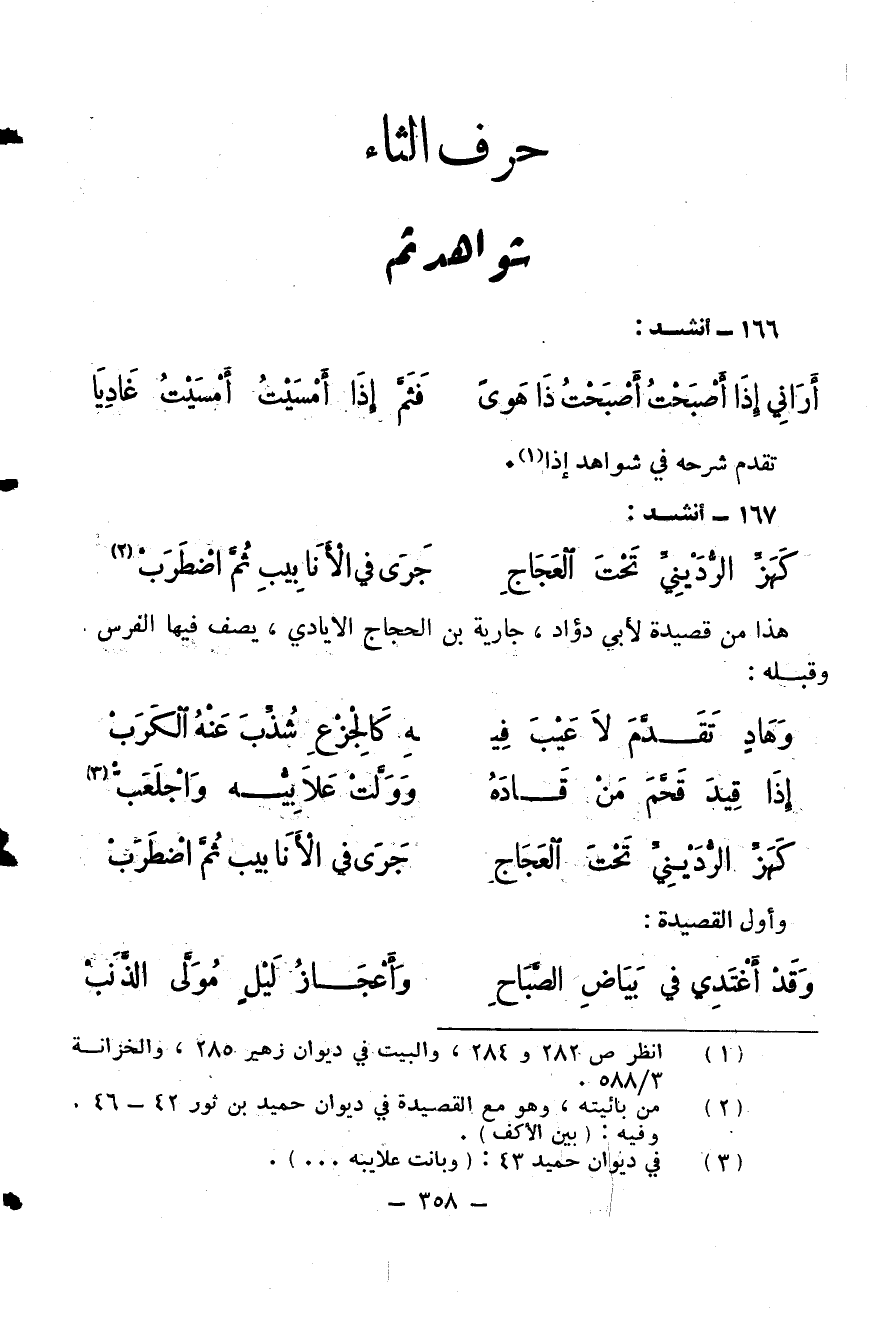 حرف الثاء
شواهد ثم
١٦٦ ــ أنشــد :
أَرَانِي إِذَا أَصْبَحْتُ أَصْبَحْتُ ذَا هَوىً فَثَمَّ إِذَا أَمْسَيْتُ أَمْسَيْتُ غَادِيَا
تقدم شرحه في شواهد إذا(١).
١٦٧ ــ أنشــد :
كَهَزِّ الرُّدَيْنِيِّ تَحْتَ العَجَاجِ جَرَى في الْأَنَابِيبِ ثُمَّ اضْطَرَبْ(٢)
هذا من قصيدة لأبي دؤاد ، جارية بن الحجاج الايادي ، يصف فيها الفرس .
وقبــله :
وَهَادٍ تَقَــدَّمَ لاَ عَيْبَ فِيـ ـهِ كَالْجِزْعِ شُذِّبَ عَنْهُ الكَرَبْ
إِذَا قِيدَ قَحَّمَ مَنْ قَــادَهُ وَوَلَّتْ عَلاَبِيُّــه وَاجْلَعَبّْ(٣)
كَهَزِّ الرُّدَيْـنِيِّ تَحْتَ العَجَاجِ جَرَى في الْأَنَابيب ثُمَّ اضْطَرَبْ
وأول القصيدة :
وَقَدْ أَغْتَدِي في بَيَاضِ الصَّبَاحِ وَأَعْجَــازُ لَيْلٍ مُوَلَّى الذَّنَبْ
(١) انظر ص ٢٨٢ و ٢٨٤ ، والبيت في ديوان زهير ٢٨٥ ، والخزانــة
٥٨٨/٣ .
(٢) من بائيته ، وهو مع القصيدة في ديوان حميد بن ثور ٤٢ ــ ٤٦ .
وفيه : ( بين الأكف ) .
(٣) في ديوان حميد ٤٣ : ( وبانت علاييه ... ) .
ــ ٣٥٨ ــ